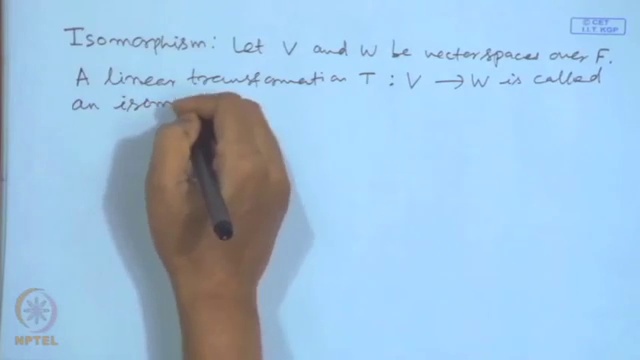 © CET
I.I.T. KGP
Isomorphism: Let V and W be vector spaces over F.
A linear transformation T : V → W is called
an isom
NPTEL